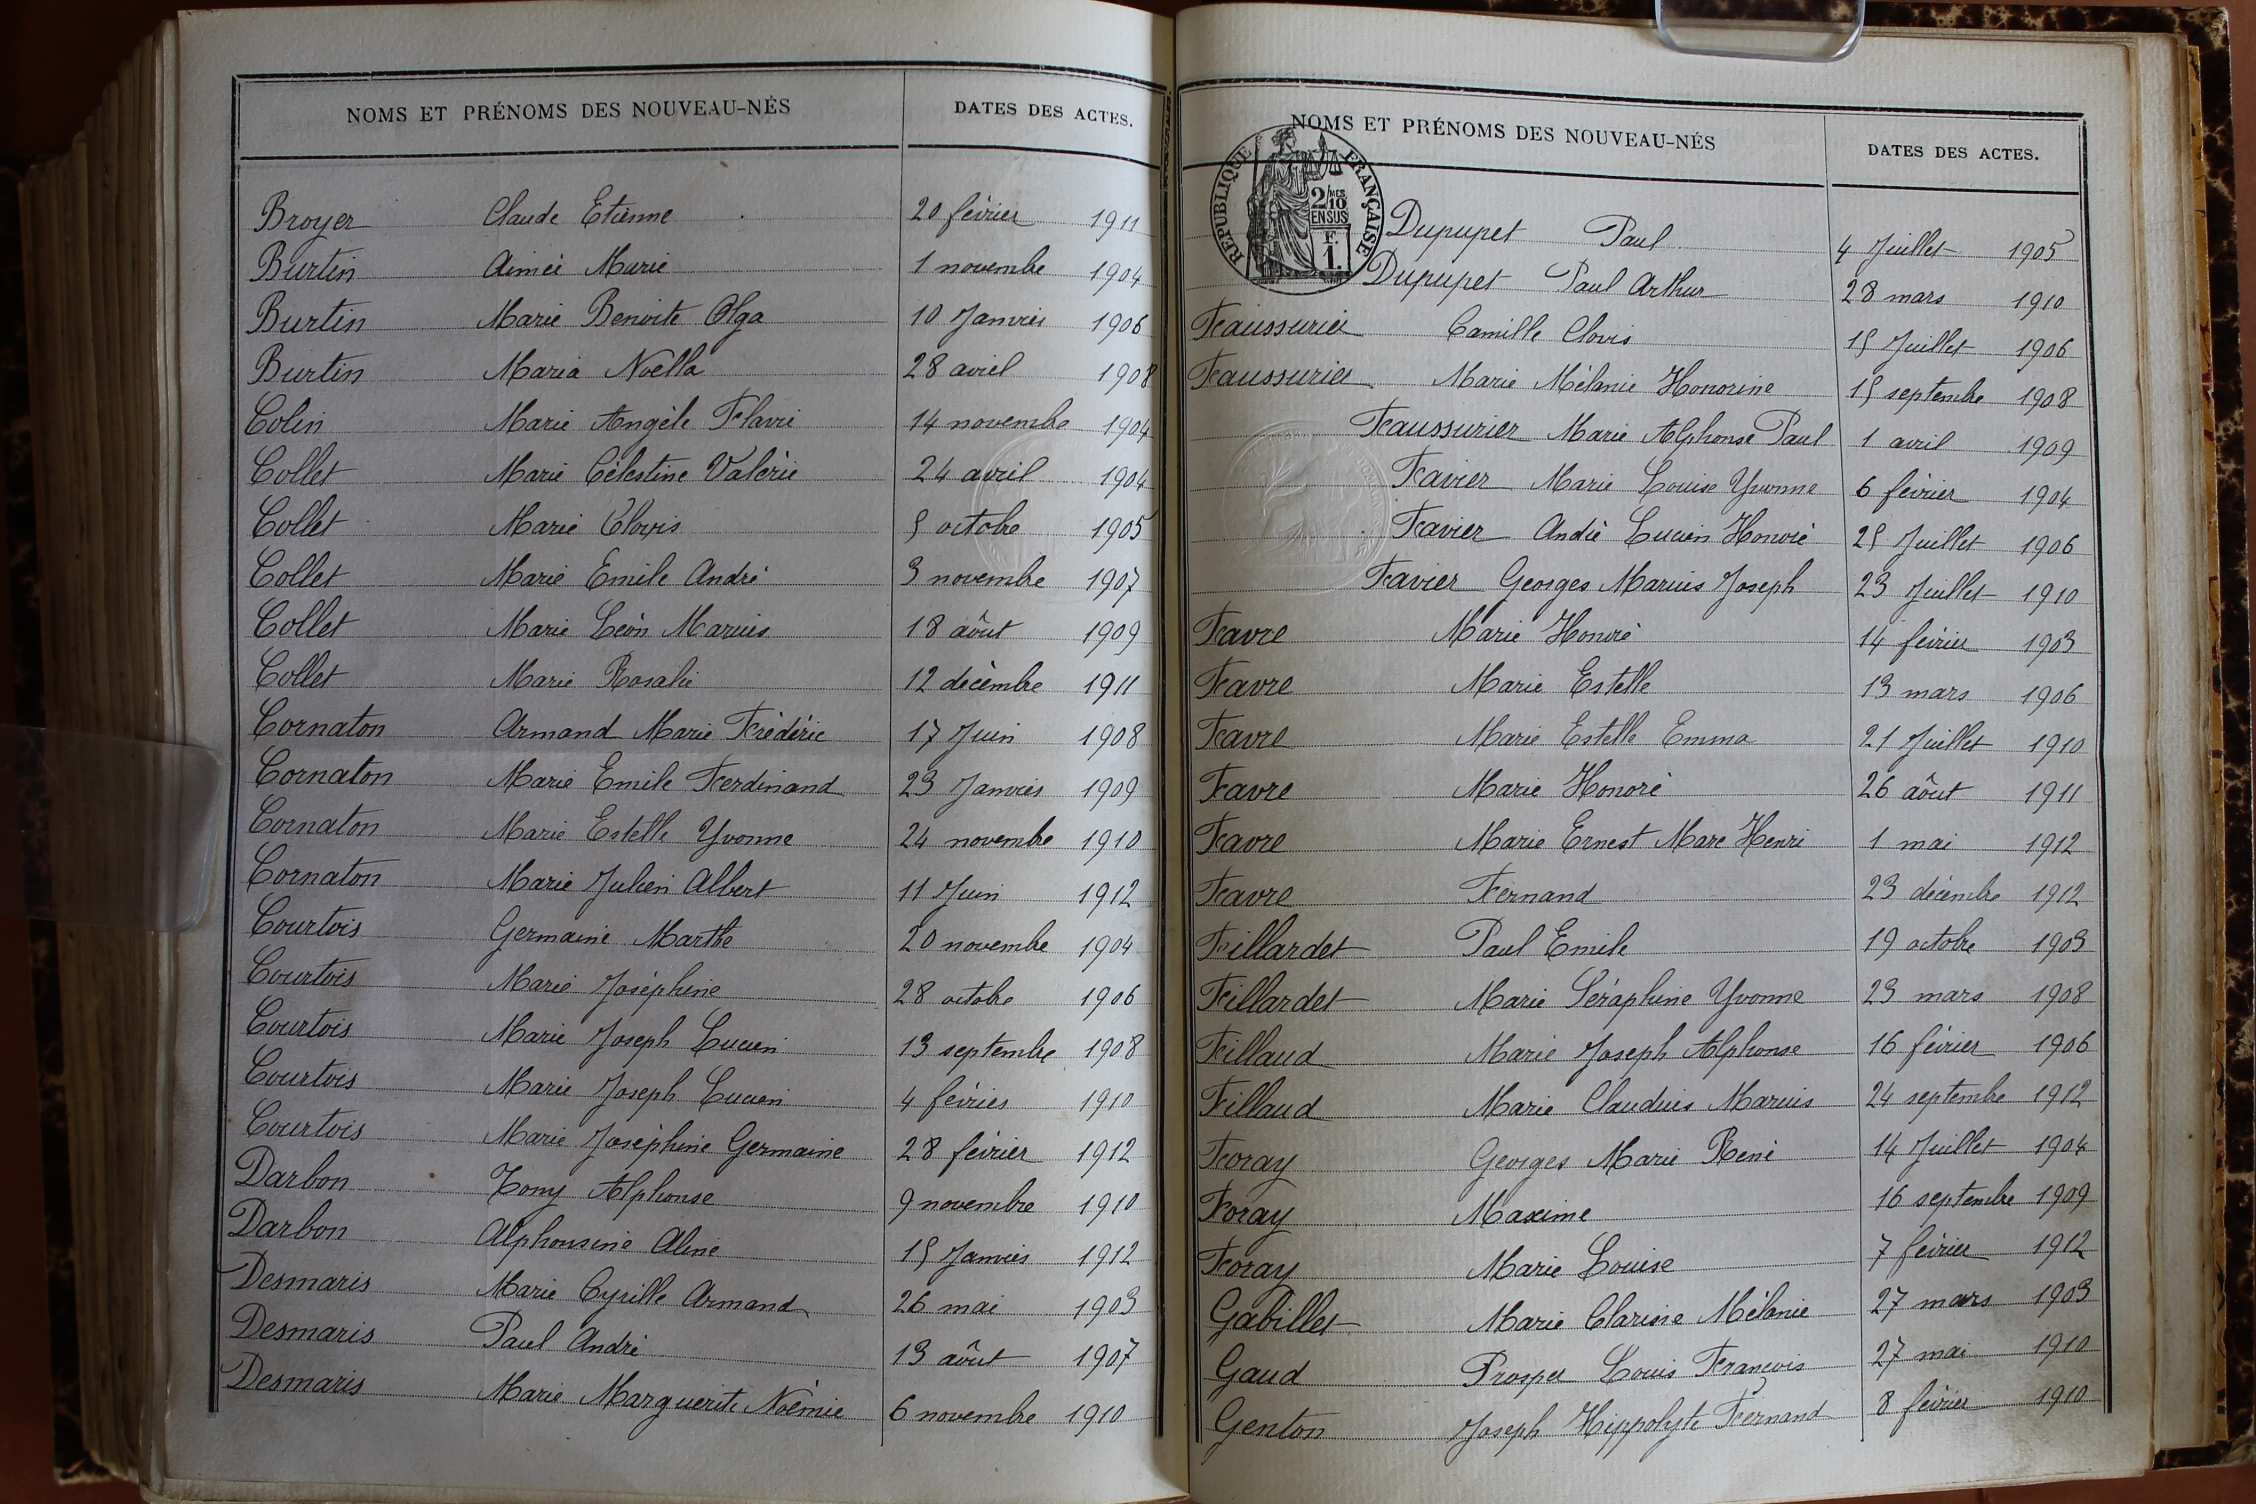 NOMS ET PRÉNOMS DES NOUVEAU-NÉS DATES DES ACTES.
Broyer Claude Etienne 20 février 1911
Burtin Aimée Marie 1 novembre 1904
Burtin Marie Benoite Olga 10 Janvier 1906
Burtin Maria Noella 28 avril 1908
Colin Marie Angèle Flavie 14 novembre 1904
Collet Marie Célestine Valérie 24 avril 1904
Collet Marie Clovis 5 octobre 1905
Collet Marie Emile André 3 novembre 1907
Collet Marie Léon Marius 18 août 1909
Collet Marie Rosalie 12 décembre 1911
Cornaton Armand Marie Frédéric 17 Juin 1908
Cornaton Marie Emile Ferdinand 23 Janvier 1909
Cornaton Marie Estelle Yvonne 24 novembre 1910
Cornaton Marie Julien Albert 11 Juin 1912
Courtois Germaine Marthe 20 novembre 1904
Courtois Marie Joséphine 28 octobre 1906
Courtois Marie Joseph Lucien 13 septembre 1908
Courtois Marie Joseph Lucien 4 février 1910
Courtois Marie Joséphine Germaine 28 février 1912
Darbon Tony Alphonse 9 novembre 1910
Darbon Alphonsine Aline 15 Janvier 1912
Desmaris Marie Cyrille Armand 26 mai 1903
Desmaris Paul André 13 août 1907
Desmaris Marie Marguerite Noémie 6 novembre 1910
NOMS ET PRÉNOMS DES NOUVEAU-NÉS DATES DES ACTES.
REPUBLIQUE FRANÇAISE
2/10 MES
EN SUS
F.
1.
Dupupet Paul 4 Juillet 1905
Dupupet Paul Arthur 28 mars 1910
Faussurier Camille Clovis 15 Juillet 1906
Faussurier Marie Mélanie Honorine 15 septembre 1908
Faussurier Marie Alphonse Paul 1 avril 1909
Favier Marie Louise Yvonne 6 février 1904
Favier André Lucien Honoré 25 Juillet 1906
Favier Georges Marius Joseph 23 Juillet 1910
Favre Marie Honoré 14 février 1903
Favre Marie Estelle 13 mars 1906
Favre Marie Estelle Emma 21 Juillet 1910
Favre Marie Honoré 26 août 1911
Favre Marie Ernest Marc Henri 1 mai 1912
Favre Fernand 23 décembre 1912
Fillardet Paul Emile 19 octobre 1903
Fillardet Marie Séraphine Yvonne 23 mars 1908
Fillaud Marie Joseph Alphonse 16 février 1906
Fillaud Marie Claudius Marius 24 septembre 1912
Foray Georges Marie René 14 Juillet 1904
Foray Maxime 16 septembre 1909
Foray Marie Louise 7 février 1912
Gabillet Marie Clarisse Mélanie 27 mars 1903
Gaud Prosper Louis François 27 mai 1910
Genton Joseph Hippolyte Fernand 8 février 1910